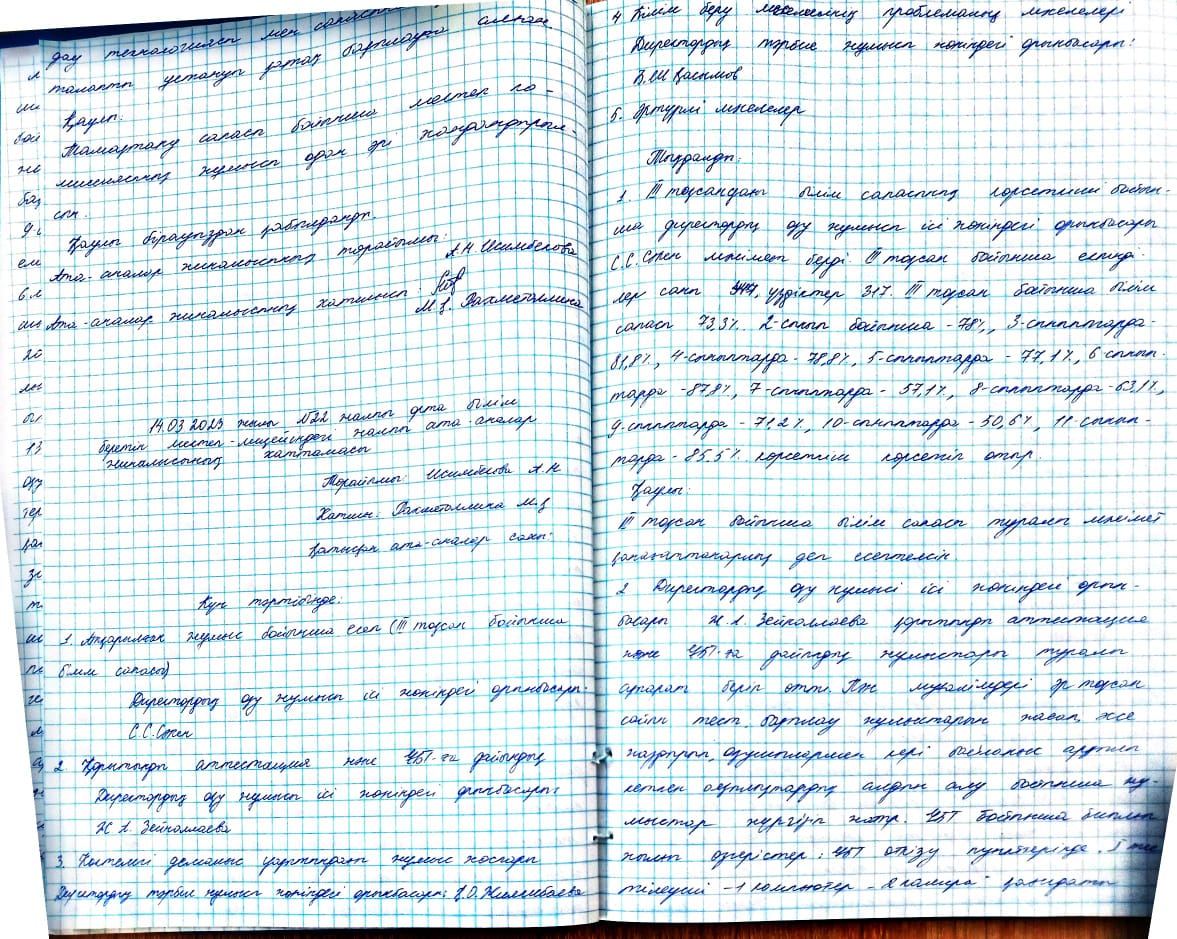 дау технологиясы мен сапасын
талапты ұстануы қатаң бақылауда алынған
Қаулы:
Тамақтану сапасы бойынша мектеп ко-
миссиясының жұмысы одан әрі жандандырыл-
сын.
Қаулы бірауыздан қабылданды.
Ата-аналар жиналысының төрайымы: А.Н Исимбекова
Ата-аналар жиналысының хатшысы: М.Қ. Рахметоллина
14.03.2023 жылы №22 жалпы орта білім
беретін мектеп-лицейіндегі жалпы ата-аналар
жиналысының хаттамасы
Төрайымы: Исимбекова А.Н
Хатшы: Рахметоллина М.Қ
Қатысқан ата-аналар саны:
Күн тәртібінде:
1. Атқарылған жұмыс бойынша есеп (III тоқсан бойынша
білім сапасы)
Директордың оқу жұмысы ісі жөніндегі орынбасары:
С.С.Сәкен
2 Қорытынды аттестация және ҰБТ-ға дайындық
Директордың оқу жұмысы ісі жөніндегі орынбасары:
Ж.А. Зейноллаева
3. Көктемгі демалыс уақытындағы жұмыс жоспары
Директордың тәрбие жұмысы жөніндегі орынбасары: Қ.О.
4 Білім беру мәселенің проблеманың мәселелері
Директордың тәрбие жұмысы жөніндегі орынбасары:
Б.Ш Қасымов
5. Әртүрлі мәселелер
Тыңдалды:
1. III тоқсандағы білім сапасының көрсеткіші бойын-
ша директордың оқу жұмысы ісі жөніндегі орынбасары
С.С.Сәкен мәлімет берді. III тоқсан бойынша екпінді-
лер саны 444, үздіктер 317. III тоқсан бойынша білім
сапасы 73,3%. 2-сынып бойынша - 78%, 3-сыныптарда -
81,8%, 4-сыныптарда - 78,8%, 5-сыныптарда - 77,1%, 6 сынып-
тарда - 87,8%, 7-сыныптарда - 57,1%, 8-сыныптарда - 63,1%,
9-сыныптарда - 71,2%, 10-сыныптарда - 50,6%, 11-сынып-
тарда - 85,5% көрсеткіш көрсетіп отыр.
Қаулы:
III тоқсан бойынша білім сапасы туралы мәлімет
қанағаттанарлық деп есептелсін.
2 Директордың оқу жұмысы ісі жөніндегі орын-
басары Ж.А. Зейноллаева қорытынды аттестация
және ҰБТ-ға дайындық жұмыстары туралы
ақпарат беріп өтті. Пән мұғалімдері әр тоқсан
сайын тест, бақылау жұмыстарын жасап, және
жаздырып, оқушылармен кері байланыс арқылы
кеткен олқылықтардың алдын алу бойынша жұ-
мыстар жүргізіп жатыр. ҰБТ бойынша биылғы
жылғы өзгерістер: ҰБТ өткізу пункттерінде, 1
тілеуші - 1 компьютер - 2 камера қағидаты